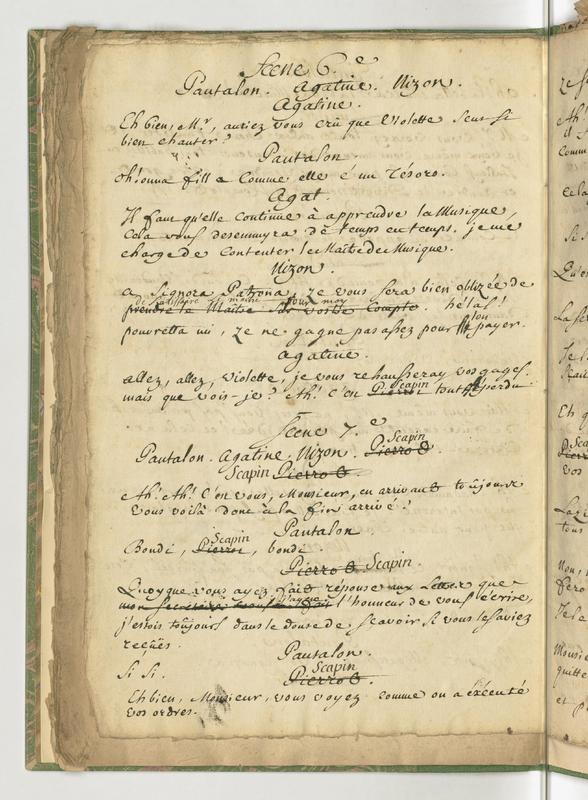 Scene 6.e
Pantalon. Agatine. Nizon.
Agatine.
Eh bien, Mr, auriez vous crû que Violette sceut si
bien chanter?
Pantalon.
oh! onna filla comme elle é un tésoro.
Agat.
Il faut qu'elle continue à apprendre la Musique,
cela vous desennuyra de temps en temps. je me
charge de contenter le Maître de Musique.
Nizon.
a Signora Patrona, ze vous sera bien oblizée de
de satisfare le maitre pour moy
prendre le Maître sur vostre Compte. hélas!
pouvretta mi, ze ne gagne pas assez pour payer.
Agatine.
allez, allez, Violette, je vous rehausseray vos gages.
mais que vois-je? Ah! c'en Pierrot Scapin tout perdu
Scene 7.e
Pantalon. Agatine. Nizon. Pierrot Scapin.
Scapin Pierrot.
Ah! Ah! c'en vous, Monsieur, en arrivant toûjours
vous voilà donc à la fin arrivé!
Pantalon
Bondi, Pierrot Scapin, bondi.
Pierrot Scapin.
Quoyque vous ayez fait réponse aux Lettres que
l'honneur de vous écrire,
j'estois toûjours dans le doute de sçavoir si vous les aviez
reçües.
Pantalon.
Si Si.
Scapin
Pierrot.
Eh bien, Monsieur, vous voyez comme on a éxécuté
vos ordres.